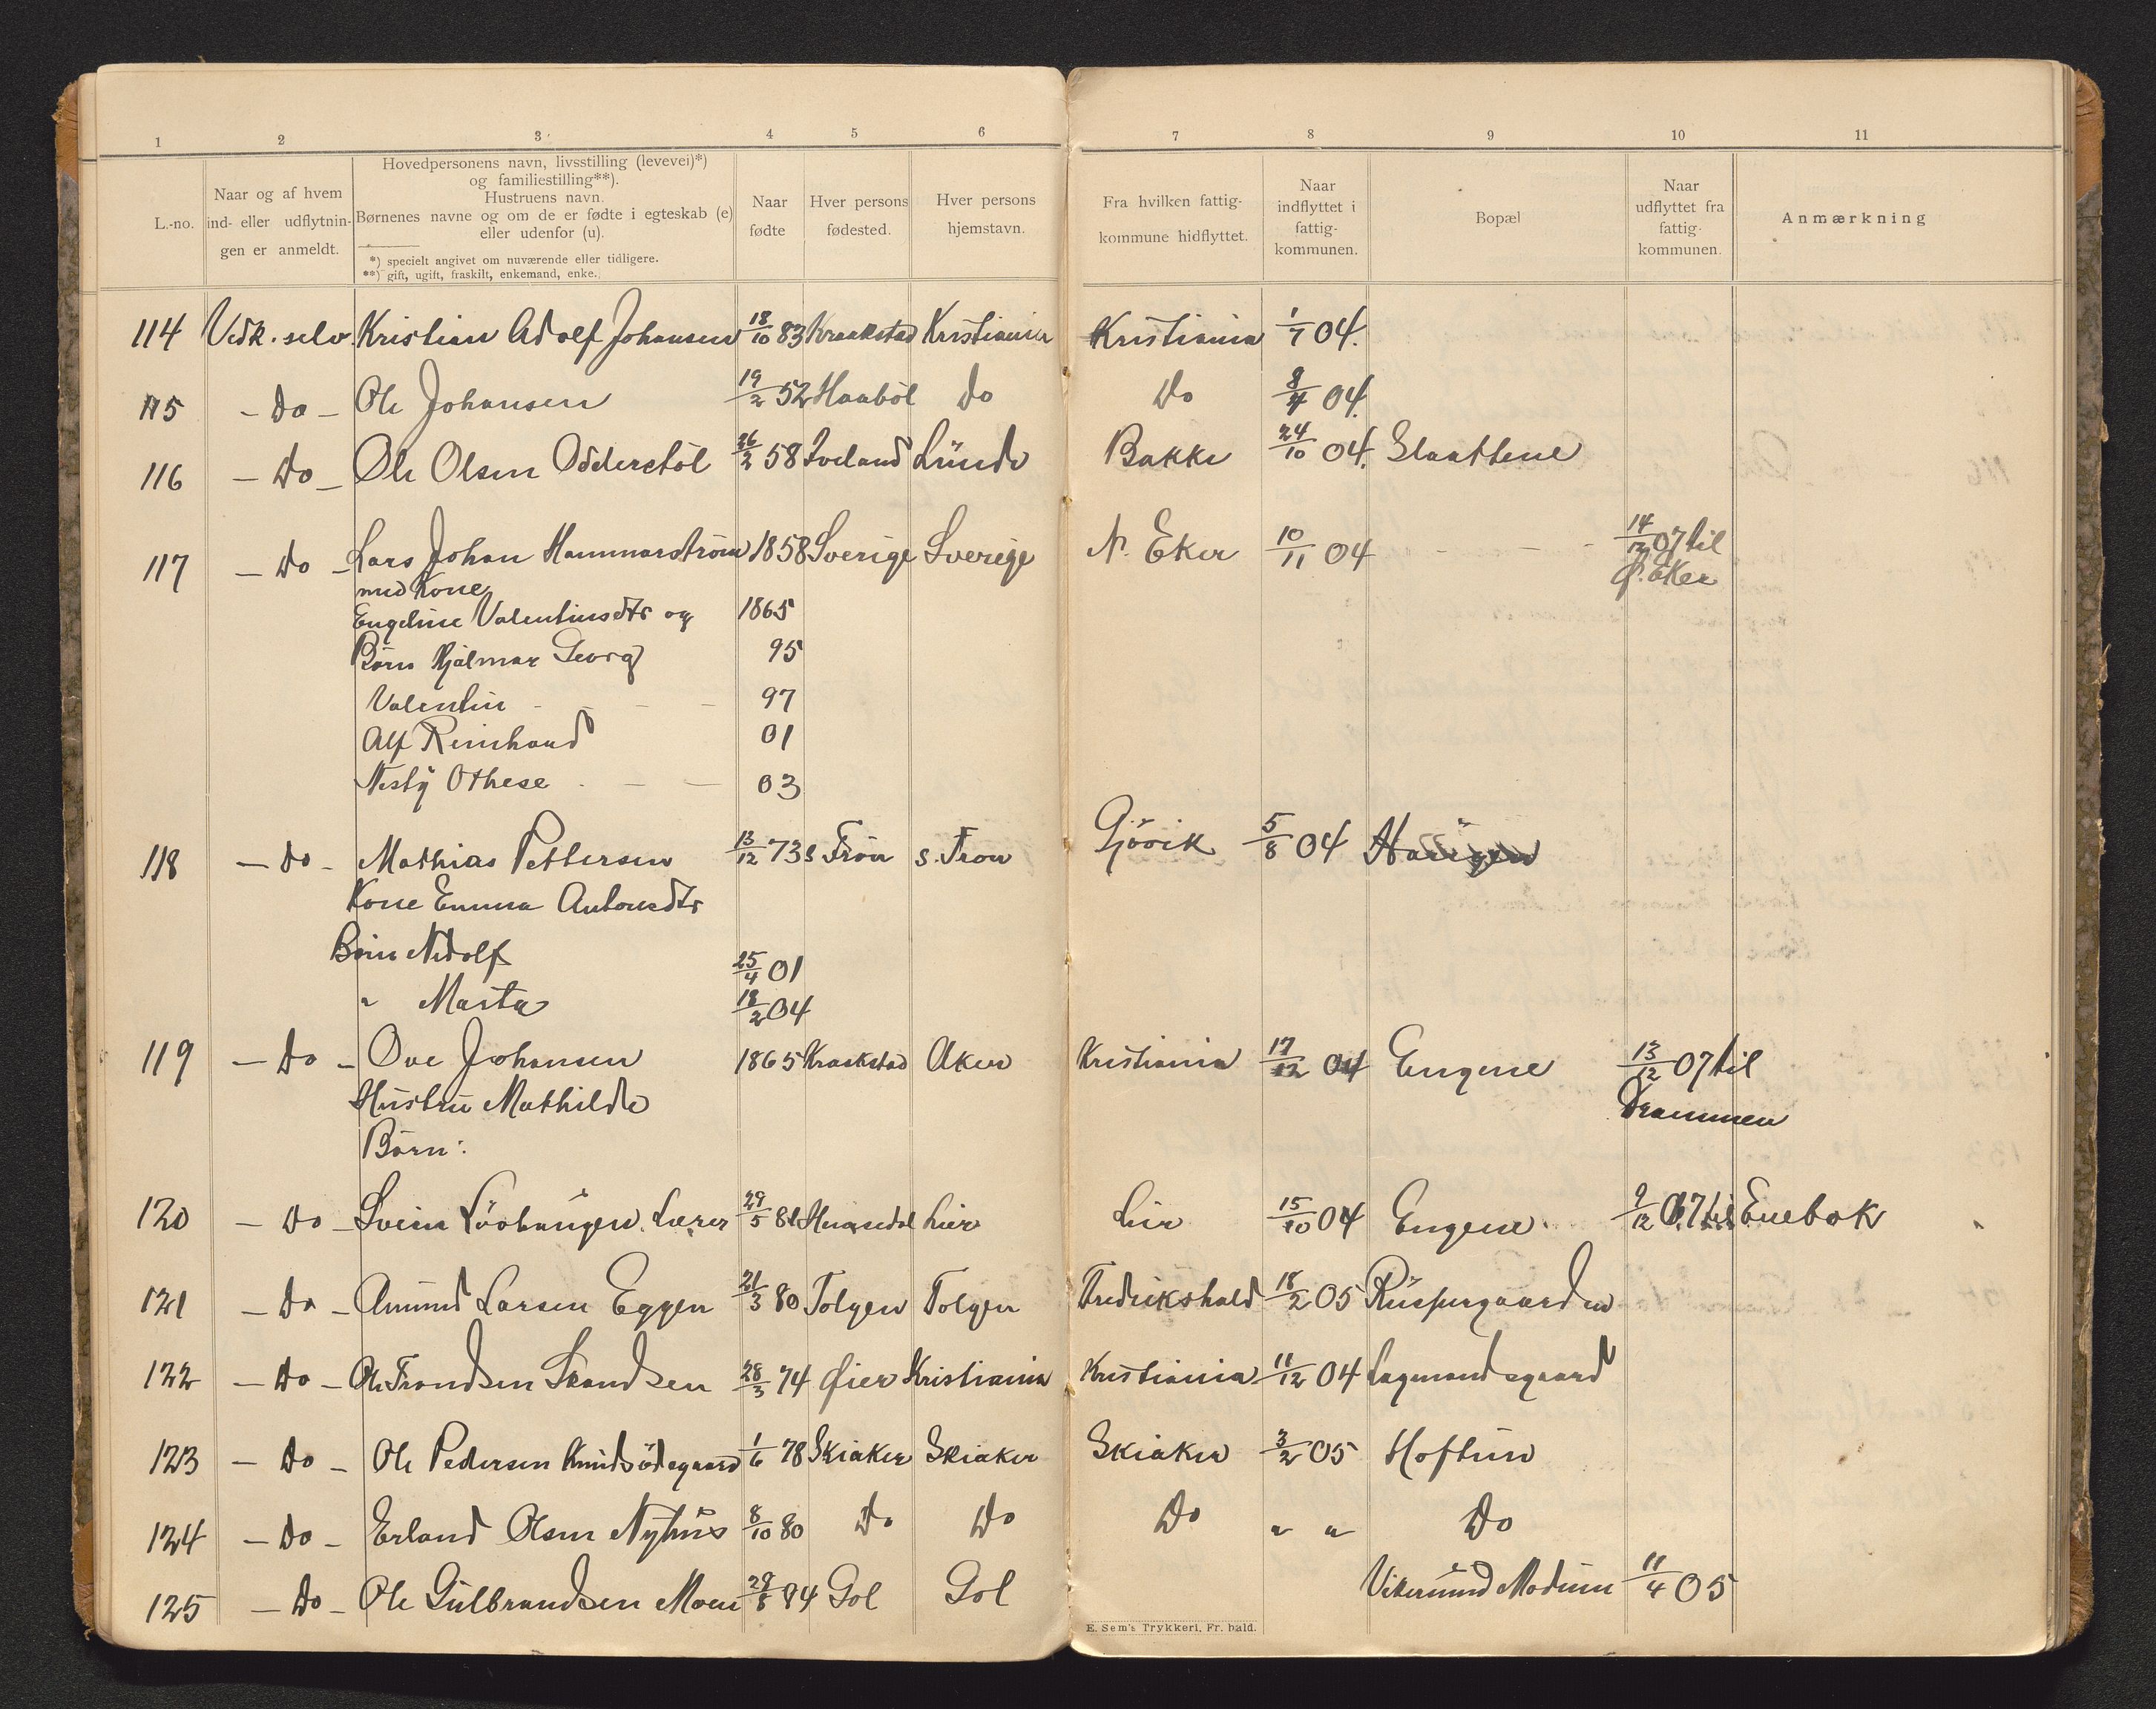 1 2 3 4 5 6 7 8 9 10 11
L.-no.
Naar og af hvem
ind- eller udflytnin-
gen er anmeldt.
Hovedpersonens navn, livsstilling (levevei)*)
og familiestilling**).
Hustruens navn.
Børnenes navne og om de er fødte i egteskab (e)
eller udenfor (u).
*) specielt angivet om nuværende eller tidligere.
**) gift, ugift, fraskilt, enkemand, enke.
Naar
fødte
Hver persons
fødested.
Hver persons
hjemstavn.
Fra hvilken fattig-
kommune hidflyttet.
Naar
indflyttet i
fattig-
kommunen.
Bopæl
Naar
udflyttet fra
fattig-
kommunen.
Anmærkning
114 Vedk. selv. Kristian Adolf Johansen 18/10 83 Kraakstad Kristiania Kristiania 1/7 04.
115 - Do - Ole Johansen 19/2 52 Haaböl Do Do 8/4 04.
116 - Do - Ole Olsen Odderstöl 26/2 58 Iveland Lunde Bakke 24/10 04. Slaattene
117 - Do - Lars Johan Hammarström 1858 Sverige Sverige N. Eker 10/11 04 - - - 14/12 07 til
med Kone Ø. Eker
Engeline Valentinsdtr og 1865
Börn Hjalmar Georg 95
Valentin - - - 97
Alf Reinhard 01
Nesty Othese - - 03
118 - Do - Mathias Pettersen 13/12 73 S. Fron S. Fron Gjövik 5/8 04 Haugen
Kone Emma Antonsdtr
Börn Nidolf 25/4 01
" Marta 18/2 04
119 - Do - Ove Johansen 1865 Kraakstad Aker Kristiania 17/12 04 Engene 13/12 07 til
Hustru Mathilde Drammen
Börn:
120 - Do - Svein Lövhaugen. Lærer 29/5 81 Hemsedal Lier Lier 15/10 04 Engene. 9/12 07 til Enebak
121 - Do - Amund Larsen Eggen 21/3 80 Tolgen Tolgen Fredrikshald 18/2 05 Ruspergaarden
122 - Do - Ole Frandsen Strandsen 28/3 74 Øier Kristiania Kristiania 11/12 04 Lagmandsgaard
123 - Do - Ole Pedersen Knudsödegaard 1/6 78 Skiaker Skiaker Skiaker 3/2 05 Hoftun
124 - Do - Erland Olsen Nyhus 8/10 80 Do Do Do " " Do
125 - Do - Ole Gulbrandsen Moen 29/8 84 Gol Gol Vikersund Modum 11/4 05
E. Sem's Trykkeri, Fr. hald.